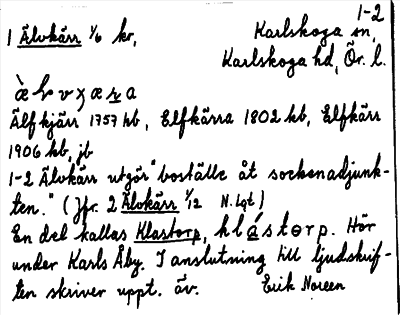 1-2
1 Älvkärr 1/6 kr, Karlskoga sn,
Karlskoga hd, Ör. l.
Älfkjärr 1757 hb, Elfkärra 1802 hb, Elfkärr
1906 kb, jb
1-2 Älvkärr utgör "boställe åt sockenadjunk-
ten." (Jfr. 2 Älvkärr 1/12 N. Lgt)
En del kallas Klastorp, klástorp. Hör
under Karls Åby. I anslutning till ljudskrif-
ten skriver uppt. äv. Erik Noreen